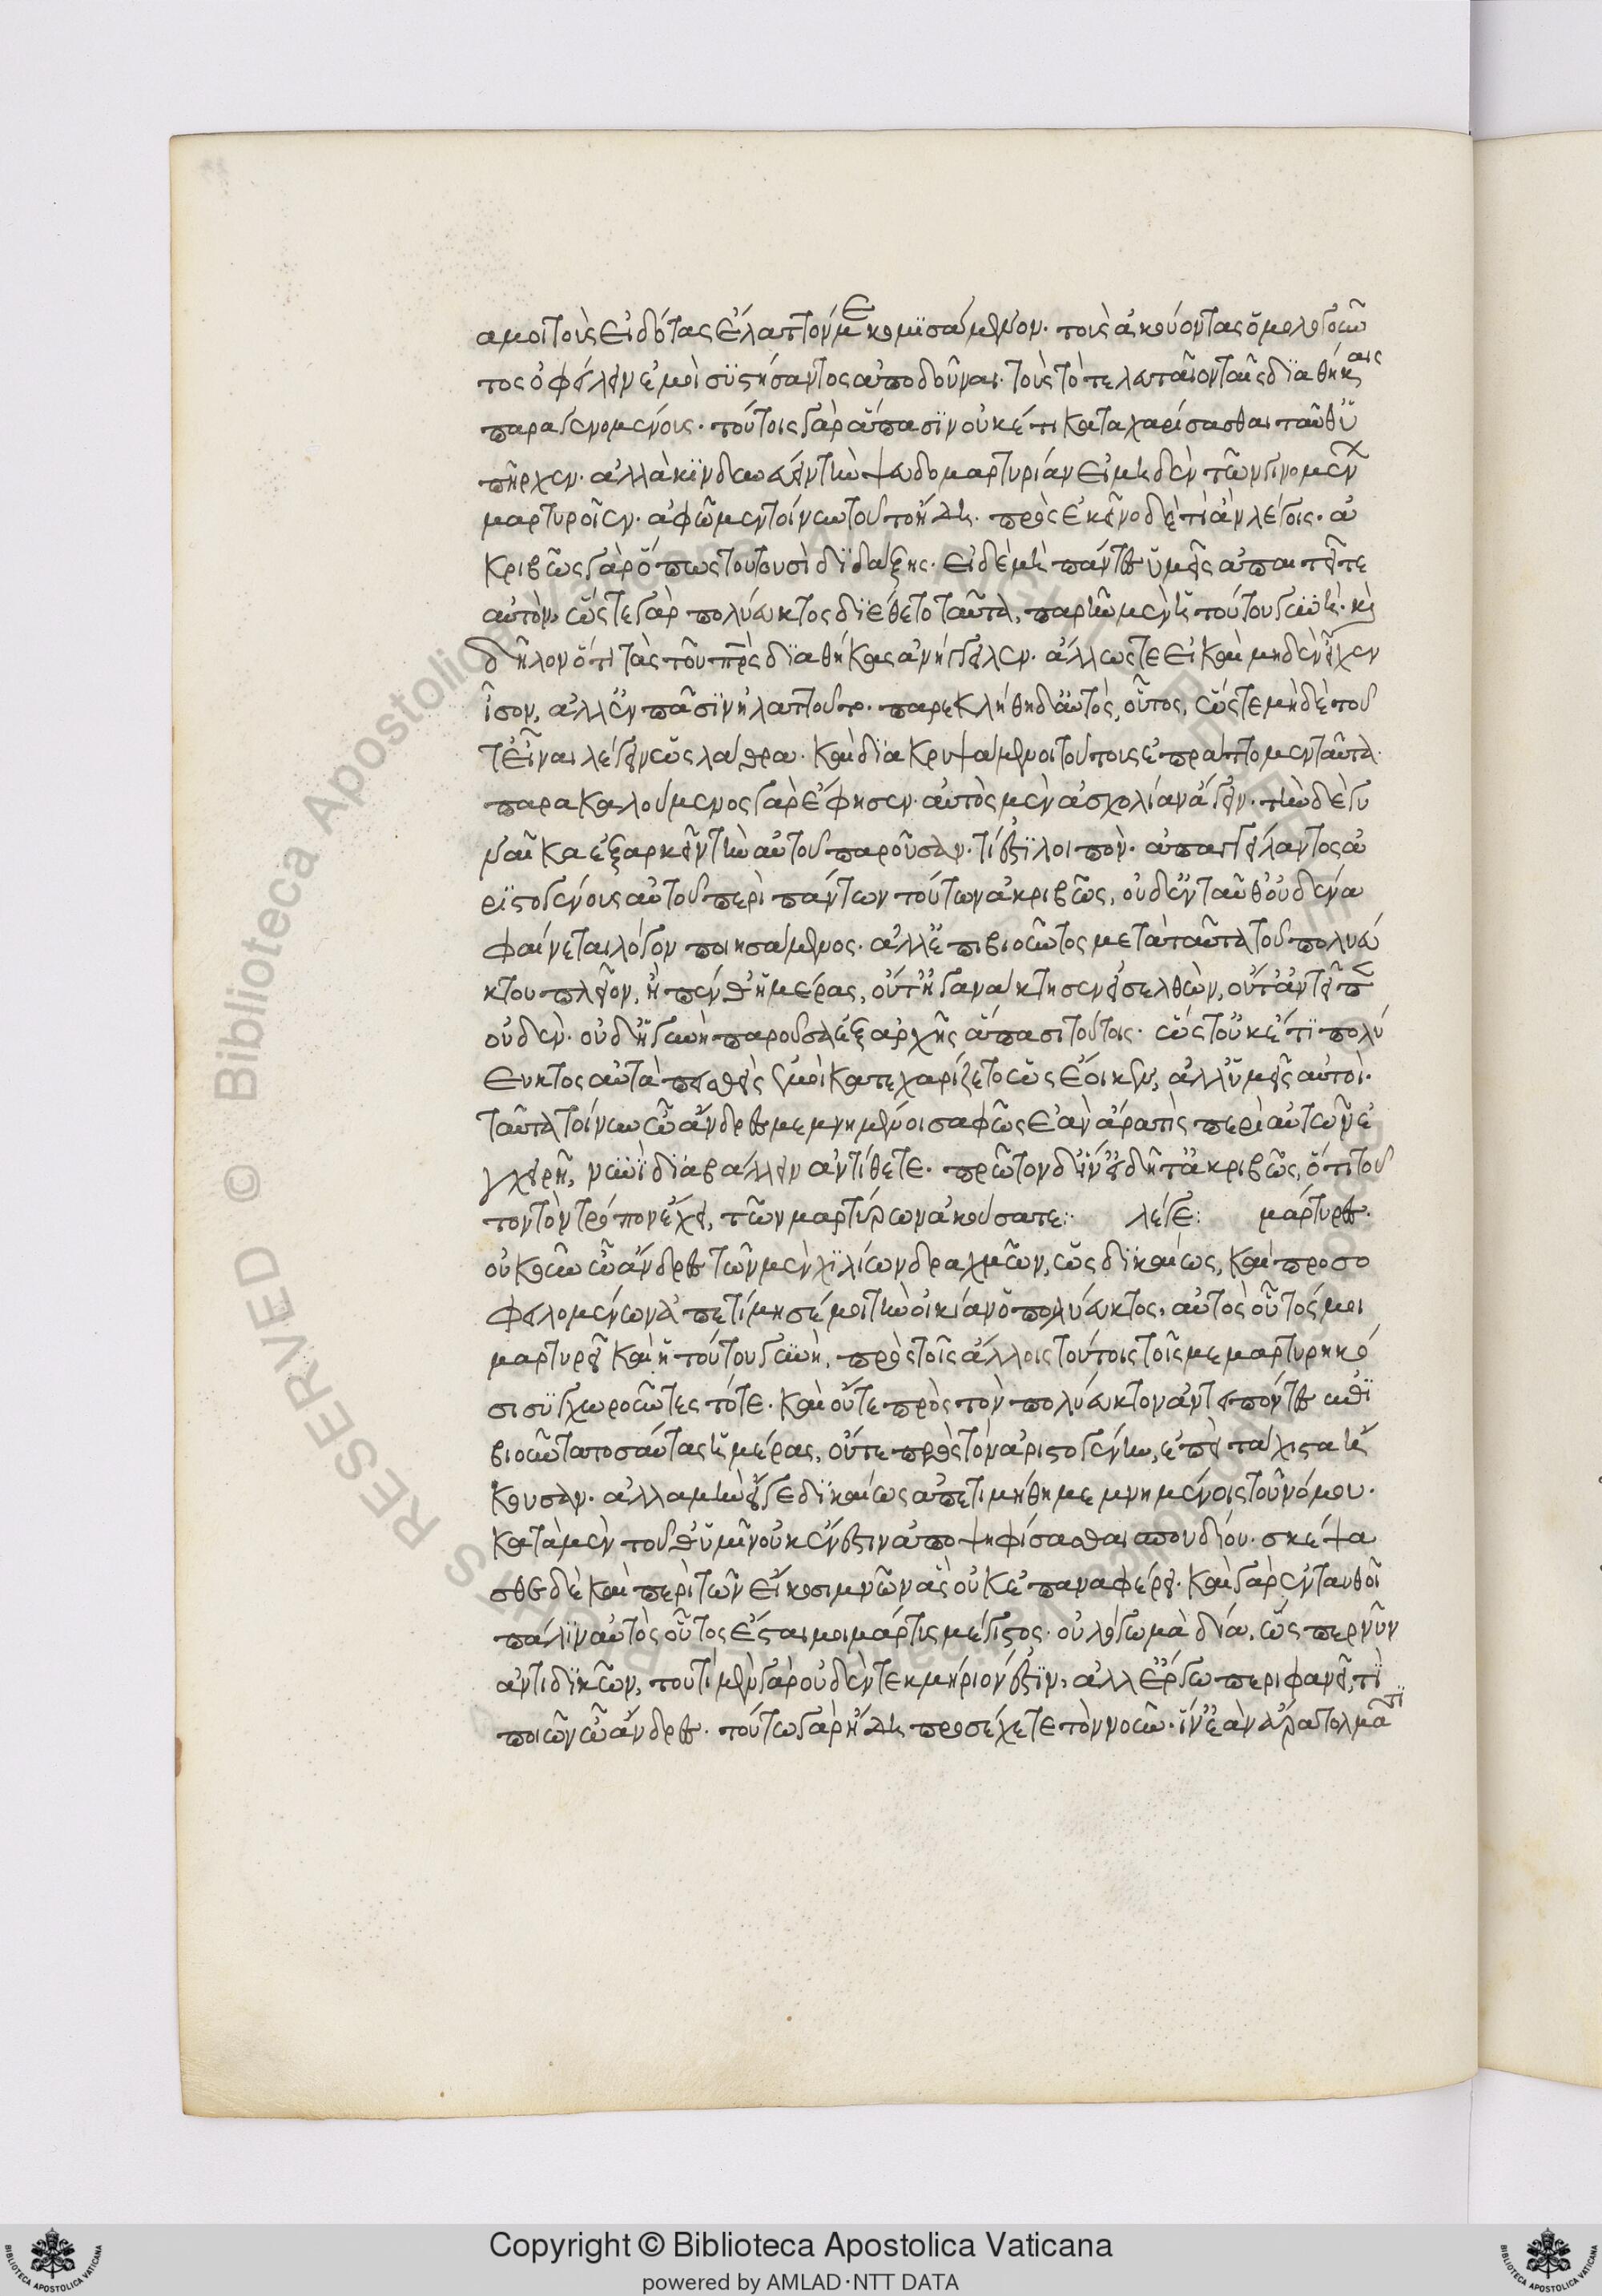 ἅ μοι τοὺς εἰδότας ἔλαττόν με κομισάμενον. τοὺς ἀκούοντας ὁμολογοῦν
τος ὀφείλειν ἐμοὶ συστήσαντος ἀποδοῦναι. τοὺς τὸ τελευταῖον ταῖς διαθήκαις
παραγενομένους. τούτοις γὰρ ἅπασιν οὐκέτι καταχαρίσασθαι ταῦθ' ὑ
πῆρχεν. ἀλλὰ κινδυνεύειν τὴν ψευδομαρτυρίαν εἰ μηδὲν τῶν γινομένων
μαρτυροῖεν. ἀφῶμεν τοίνυν τοῦτό γ' ἤδη. πρὸς ἐκεῖνο δὲ τί ἂν λέγοις. ἀ
κριβῶς γὰρ ὅπως τουτουσὶ διδάξῃς. εἰ δὲ μὴ πάντες ὑμεῖς ἀπαιτεῖτε
αὐτόν. ὥς τε γὰρ πολύευκτος διέθετο ταῦτα, παρῆν μὲν ἡ τούτου γυνή. καὶ
δῆλον ὅτι τὰς τοῦ πατρὸς διαθήκας ἀνήγγειλεν. ἄλλως τε εἰ καὶ μηδὲν εἶχεν
ἴσον, ἀλλ' ἐν πᾶσιν ἠλαττοῦτο. παρεκλήθη δ' αὐτὸς οὗτος, ὥστε μηδὲ τοῦ
τ' εἶναι λέγειν ὡς λάθρα. καὶ διακρυψάμενοι τούτους ἐπράττομεν ταῦτα.
παρακαλούμενος γὰρ ἔφησεν. αὐτὸς μὲν ἀσχολίαν ἄγειν. τὴν δὲ γυ
ναῖκα ἐξαρκεῖν τὴν αὑτοῦ παροῦσαν. τί ἐστι λοιπόν. ἀπαγγείλαντος ἀ
ριστογένους αὐτοῦ περὶ πάντων τούτων ἀκριβῶς, οὐδὲ ἐνταῦθ' οὐδένα
φαίνεται λόγον ποιησάμενος. ἀλλ' ἐπιβιοῦντος μετὰ ταῦτα τοῦ πολυεύ
κτου πλεῖον, ἢ πένθ' ἡμέρας, οὔτ' ἠγανάκτησεν εἰσελθών, οὔτ' ἀντεῖπεν
οὐδέν. οὐδ' ἡ γυνὴ παροῦσα ἐξ ἀρχῆς ἅπασι τούτοις. ὥστ' οὐκέτι πολύ
ευκτος αὐτὰ πεισθεὶς ἐμοὶ κατεχαρίζετο ὡς ἔοικεν, ἀλλ' ὑμεῖς αὐτοί.
ταῦτα τοίνυν ὦ ἄνδρες μεμνημένοι σαφῶς ἐὰν ἄρα τις περὶ αὐτῶν ἐ
γχειρῇ, νυνὶ διαβάλλειν ἀντίθετε. πρῶτον δ' ἵν' εἰδῆτ' ἀκριβῶς, ὅτι τοῦ
τον τὸν τρόπον ἔχει, τῶν μαρτύρων ἀκούσατε: λέγε: μάρτυρες.
οὐκοῦν ὦ ἄνδρες τῶν μὲν χιλίων δραχμῶν, ὡς δικαίως, καὶ προσο
φειλομένων ἀπετίμησέ μοι τὴν οἰκίαν ὁ πολύευκτος, αὐτὸς οὗτός μοι
μαρτυρεῖ καὶ ἡ τούτου γυνὴ, πρὸς τοῖς ἄλλοις τούτοις τοῖς μεμαρτυρηκό
σι συγχωροῦντες τότε. καὶ οὔτε πρὸς τὸν πολύευκτον ἀντειπόντες ἐπι
βιοῦντα τοσαύτας ἡμέρας, οὔτε πρὸς τὸν ἀριστογένην, ἐπεὶ τάχιστα ἤ
κουσαν. ἀλλὰ μὴν εἴ γε δικαίως ἀπετιμήθη μεμνημένοις τοῦ νόμου.
κατὰ μὲν τοῦθ' ὑμῖν οὐκ ἔνεστιν ἀποψηφίσασθαι σπουδίου. σκέψα
σθε δὲ καὶ περὶ τῶν εἴκοσι μνῶν ἃς οὐκ ἐπαναφέρει. καὶ γὰρ ἐνταυθοῖ
πάλιν αὐτὸς οὗτος ἔσται μοι μάρτυς μέγιστος. οὐ λόγῳ μὰ δία, ὥσπερ νῦν
ἀντιδικῶν, τουτὶ μὲν γὰρ οὐδὲν τεκμήριόν ἐστιν, ἀλλ' ἔργῳ περιφανεῖ, τί
ποιῶν ὦ ἄνδρες. τούτῳ γὰρ ἤδη προσέχετε τὸν νοῦν. ἵν' ἐὰν ἄρα τολμᾷ τι